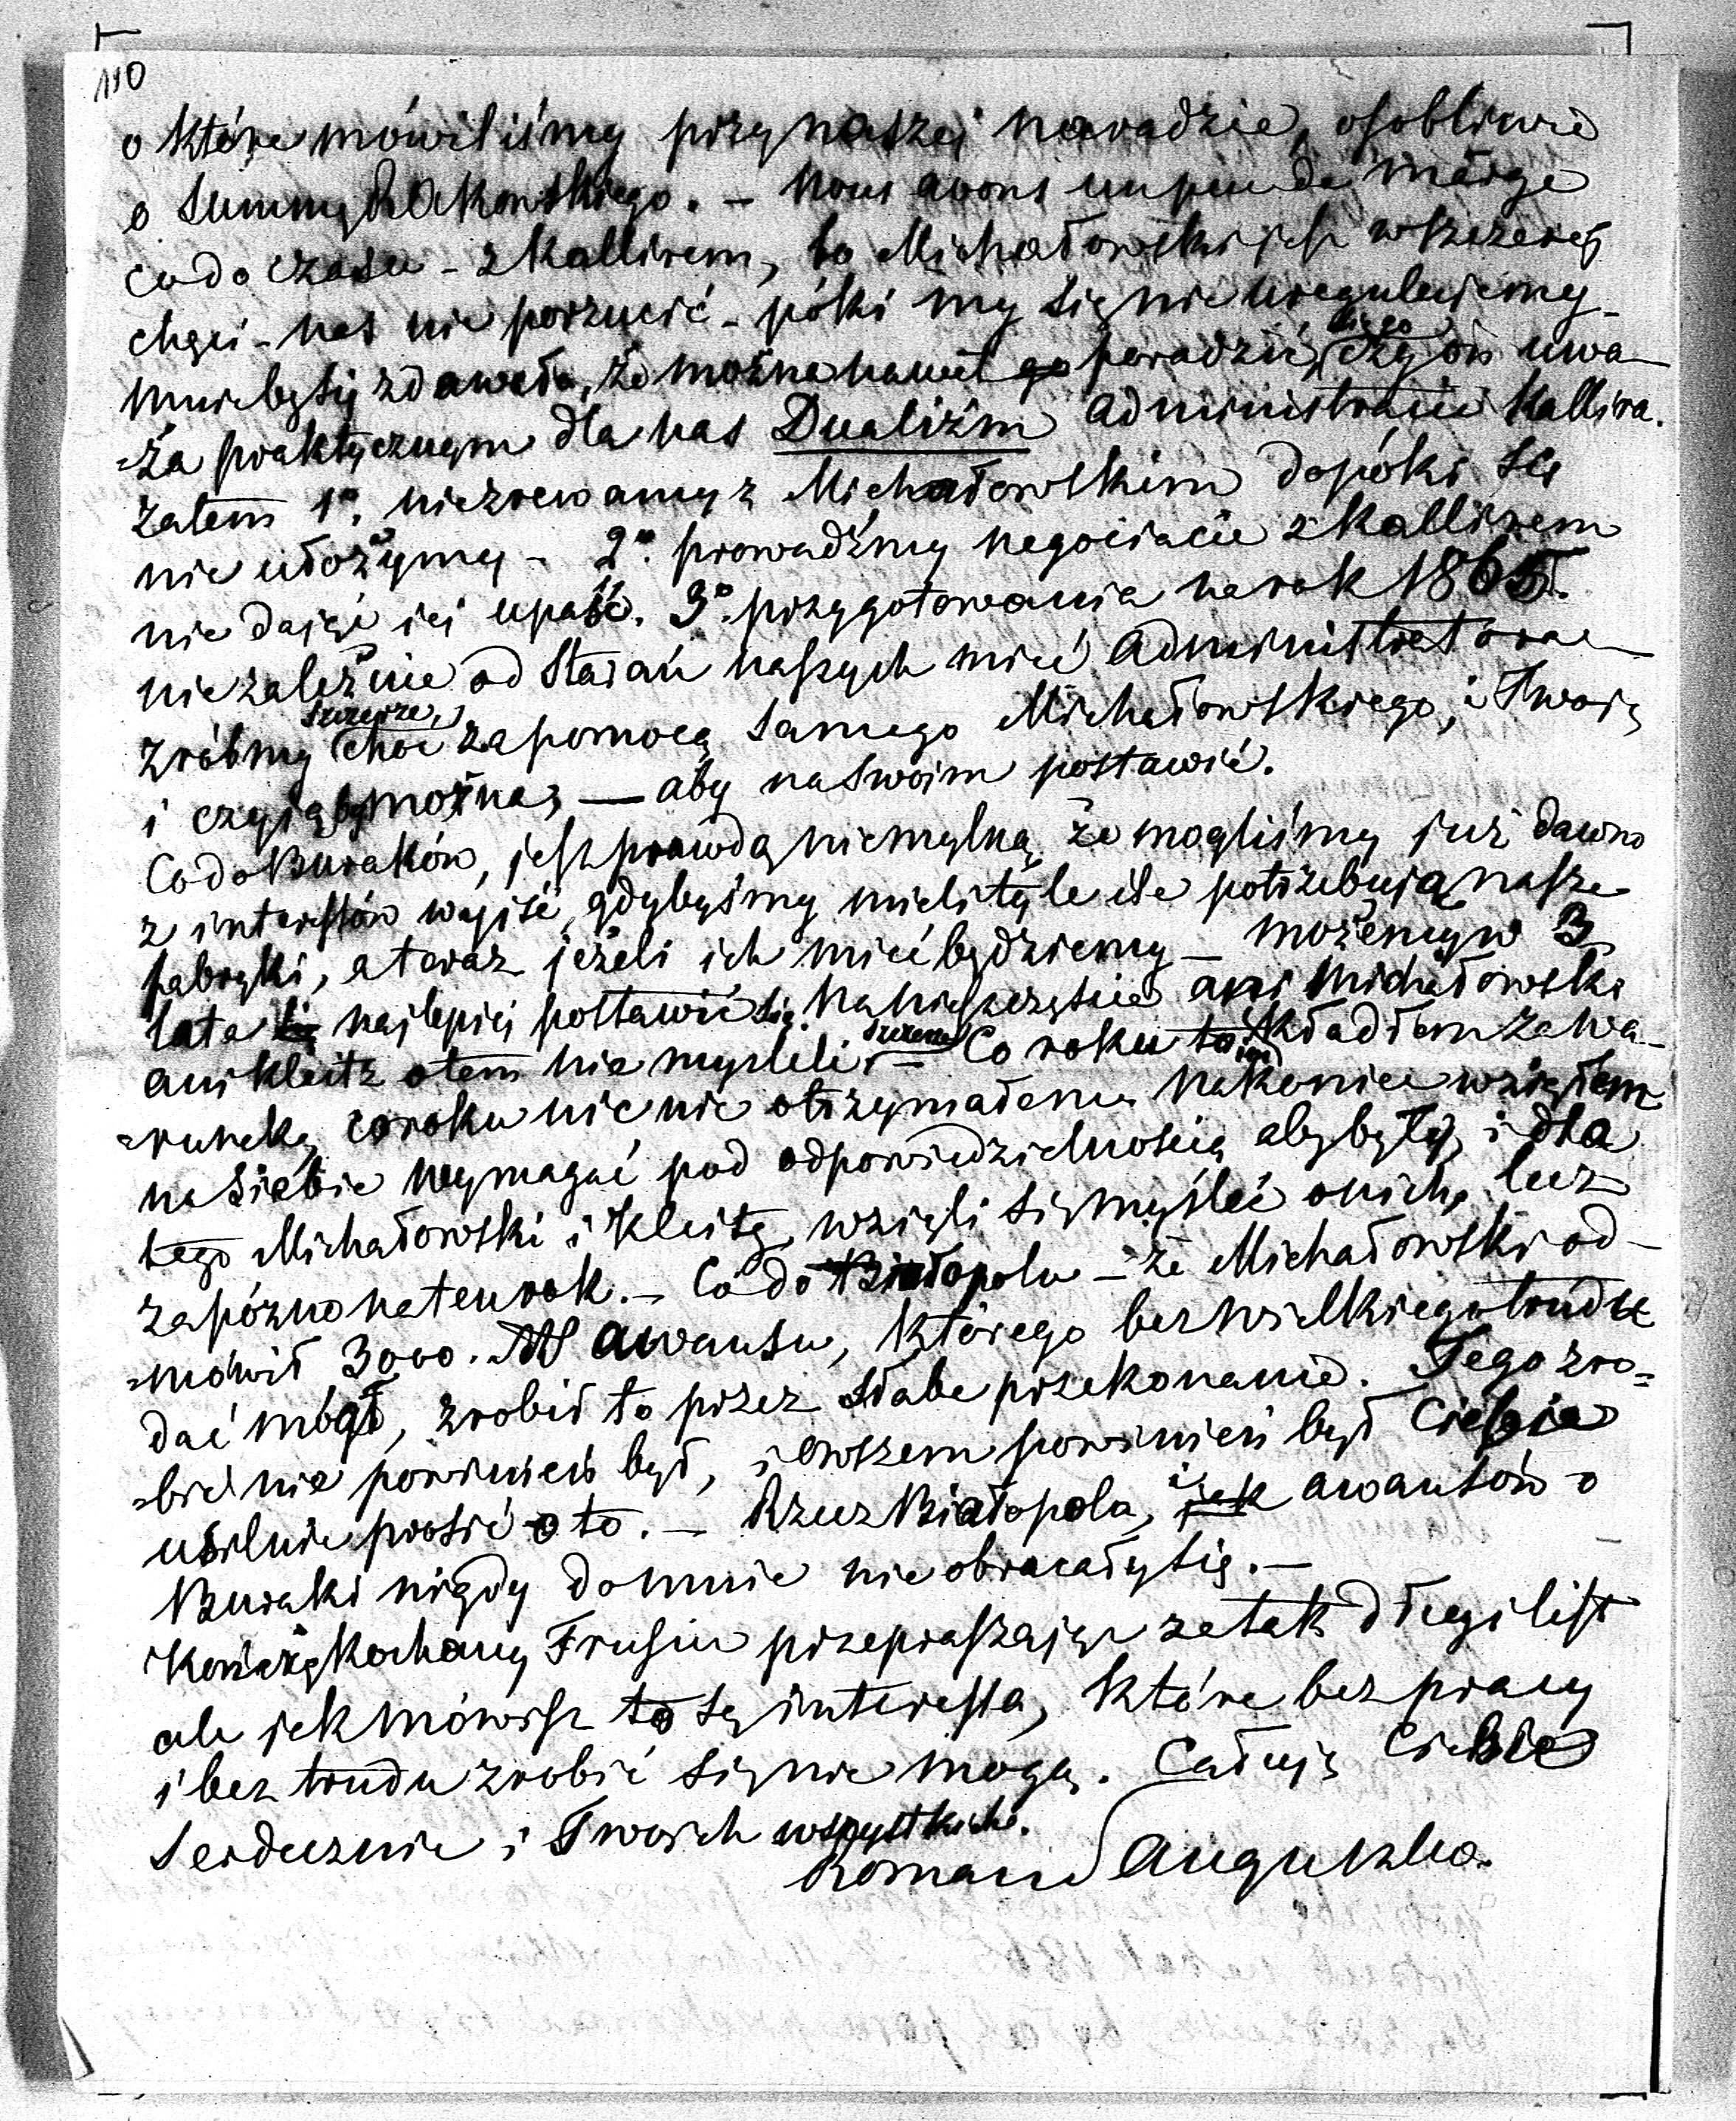 110
o które mówiliśmy przy naszej naradzie, osobliwie
o summy Rakowskiego. – Nous avons un peu de marge
co do czasu – z Kallirem, bo Michałowski jest w szczerej
chęci – nas nie porzucić – póki my się nie uregulujemy –
mnie by się zdawało, że można nawet go poradzić się go czy on uwa-
=ża praktycznym dla nas Dualizm administracii Kallira.
Zatem 1o. nie zrewamy z Michałowskim dopóki się
nie ułożymy – 2o. prowadźmy negociacie z Kallirem
nie dając jej upaść. 3o. przygotowania na rok 1865.
niezależnie od starań naszych mieć administratora –
zróbmy szczerze, choć za pomocą samego Michałowskiego, i Twoją
i czyją by można, — aby na swoim postawić.
Co do Buraków, jest prawdą niemylną, że mogliśmy już dawno
z interessów wyjść, gdybyśmy mieli tyle ile potrzebują nasze
fabryki, a teraz jeżeli ich mieć będziemy – możemy w 3
lata się najlepiej postawić się. Na nieszczęście ani Michałowski
ani Kleitz o tem nie mysleli szczerze – Co roku to kładłem za wa-
=runek, co roku nic nie otrzymałem. Nakoniec wziąłem
na siebie wymagać pod odpowiedzialnością aby były, i dla
tego Michałowski i Kleitz, wzięli się myśleć o nich, lecz
zapóźno na ten rok. – Co do Białopola – że Michałowski od-
=mówił 3000. awansu, którego bez wielkiego trudu
dać mógł, zrobił to przez słabe przekonanie. Tego zro=
=bić nie powinien był, i owszem powinien był Ciebie
usilnie prosić o to. – Rzecz Białopola, i jak awansów o
Buraki nigdy do mnie nie obracały się. –
Kończę kochany Frusiu przepraszając za tak długi list
ale jak mówisz to są interessa, które bez pracy
i bez trudu zrobić się nie mogą. Całuję Ciebie
serdecznie i Twoich wszystkich.
Roman Sanguszko.